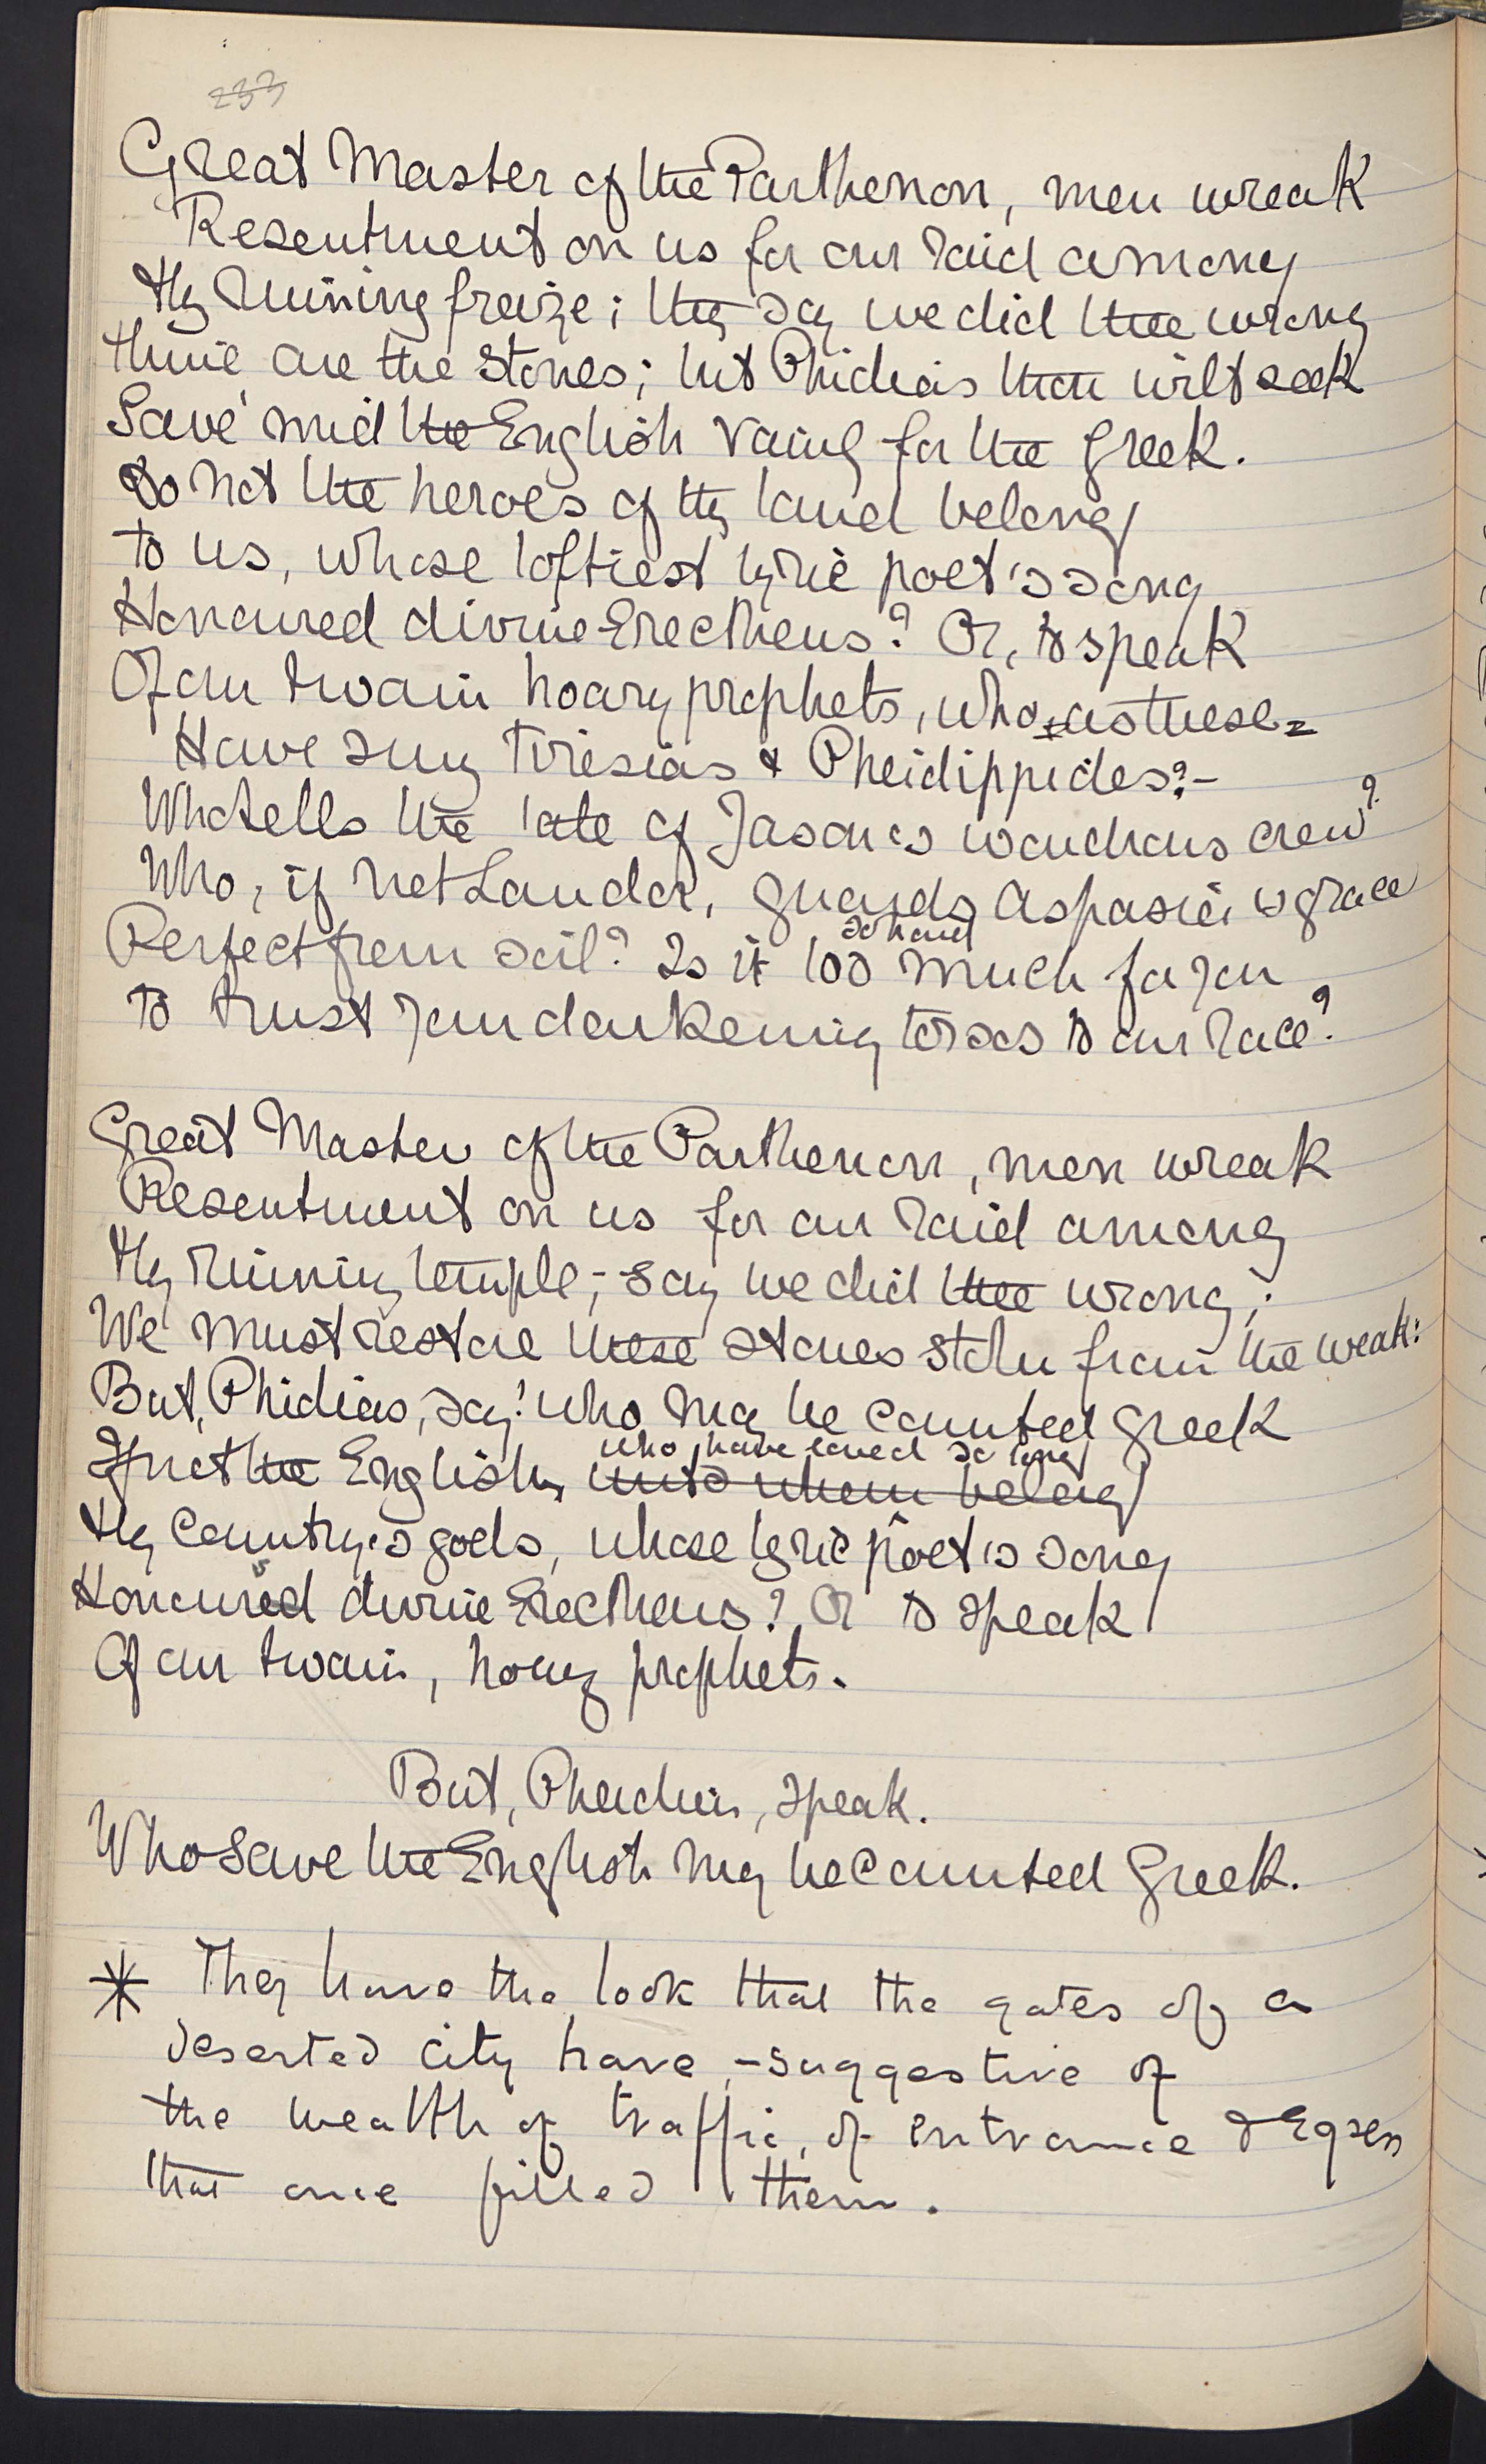 233
Great Master of the Parthenon, men wreak
Resentment on us for our raid among
thy ruining freize; they say we did thee wrong
thine are the stones; but Phidias thou wilt seek
Save 'mid the English vainly for the Greek.
Do not the heroes of thy land belong
to us, whose loftiest lyric poet's song
Honoured divine Erectheus? Or, to speak
Of our twain hoary prophets, who - as these -
Have sung Tiresias & Pheidippides? -
Who tells the tale of Jason's wondrous crew?
Who, if not Landor, guards Aspasia's grace
so hard
Perfect from soil? Is it too much for you
To trust your darkening torsos to our race?
Great Master of the Parthenon, men wreak
Resentment on us for our raid among
thy ruining temple; - say we did thee wrong;
We must restore these stones stolen from the weak:
But, Phidias, say! who may be counted Greek
who have loved so long
If not the English, unto whom belong
thy Country's gods, whose lyric poet's song
Honoured divine Erectheus? Or to speak
Of our twain, hoary prophets.
But, Pheidias, speak.
Who save the English may be counted Greek.
* They have the look that the gates of a
deserted city have, - suggestive of
the wealth of traffic, of entrance & Egress
that once filled them.